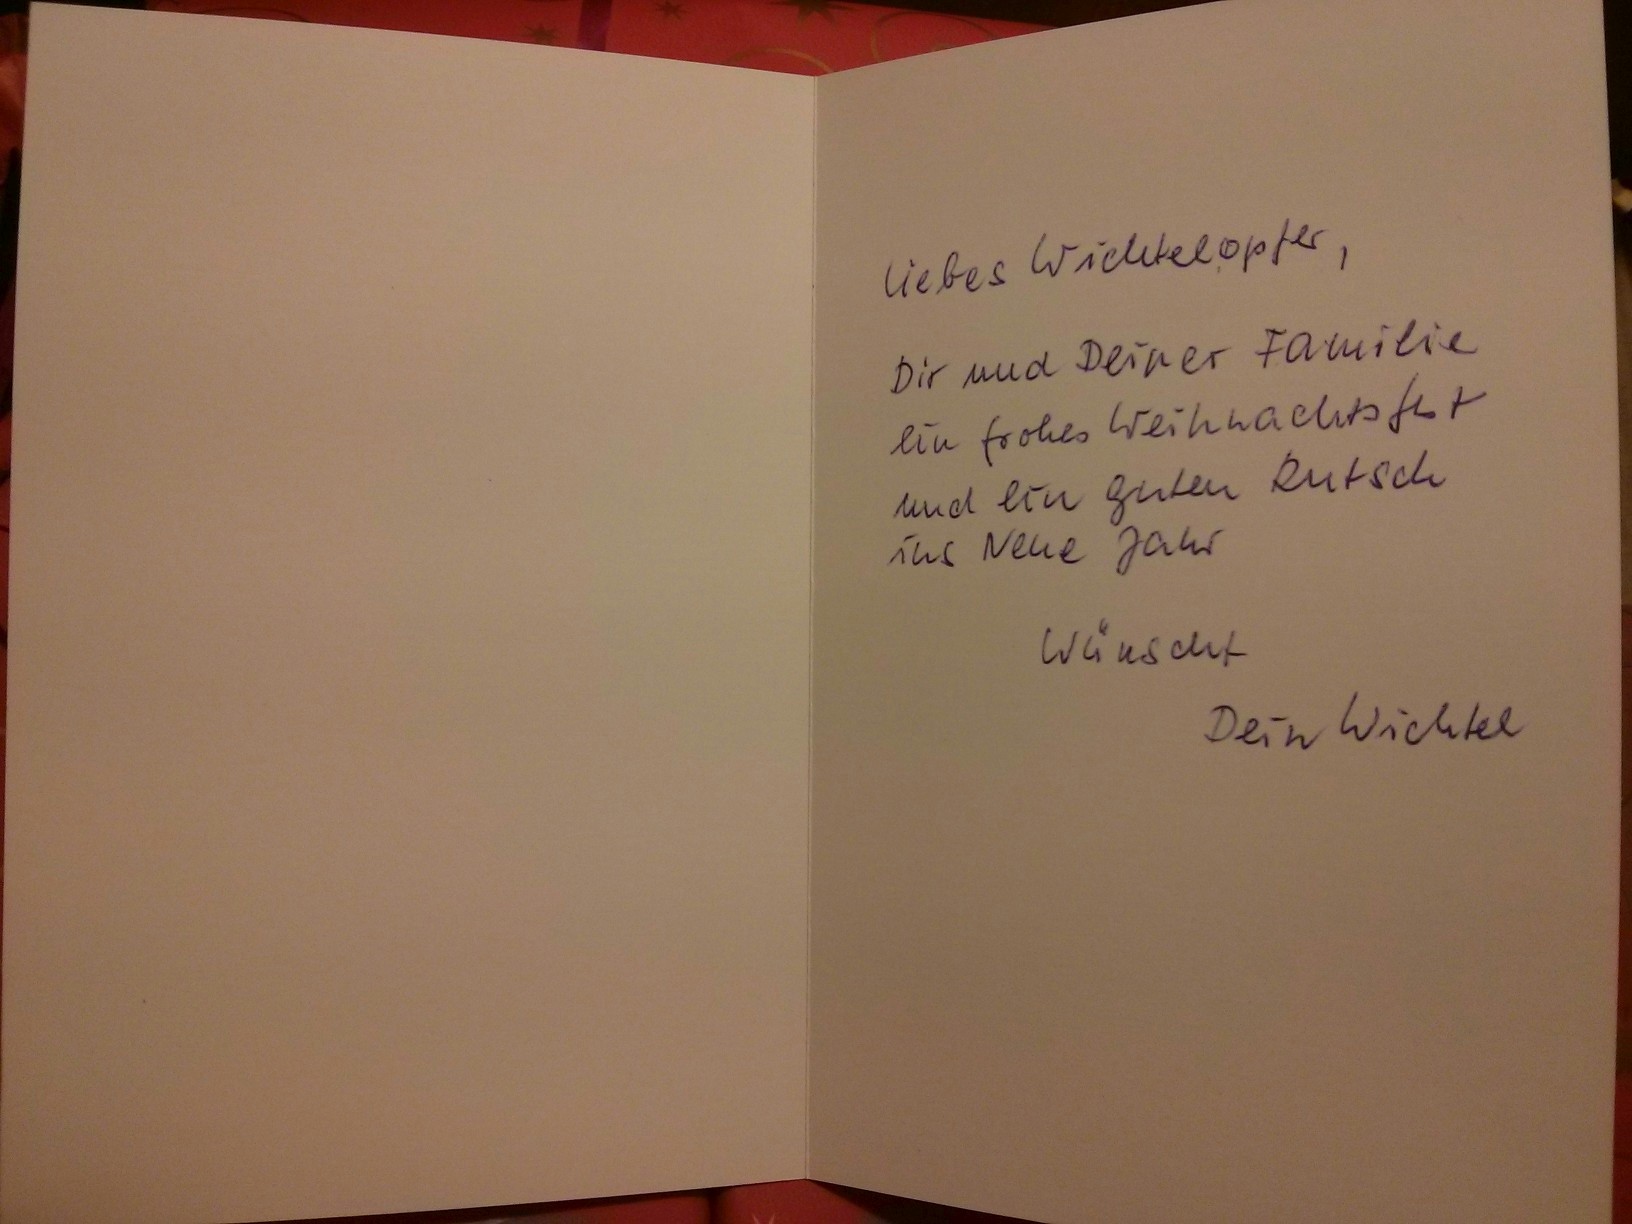 Liebes Wichtelopfer,
Dir und Deiner Familie
ein frohes Weihnachtsfest
und ein guten Rutsch
ins Neue Jahr
Wünscht
Dein Wichtel